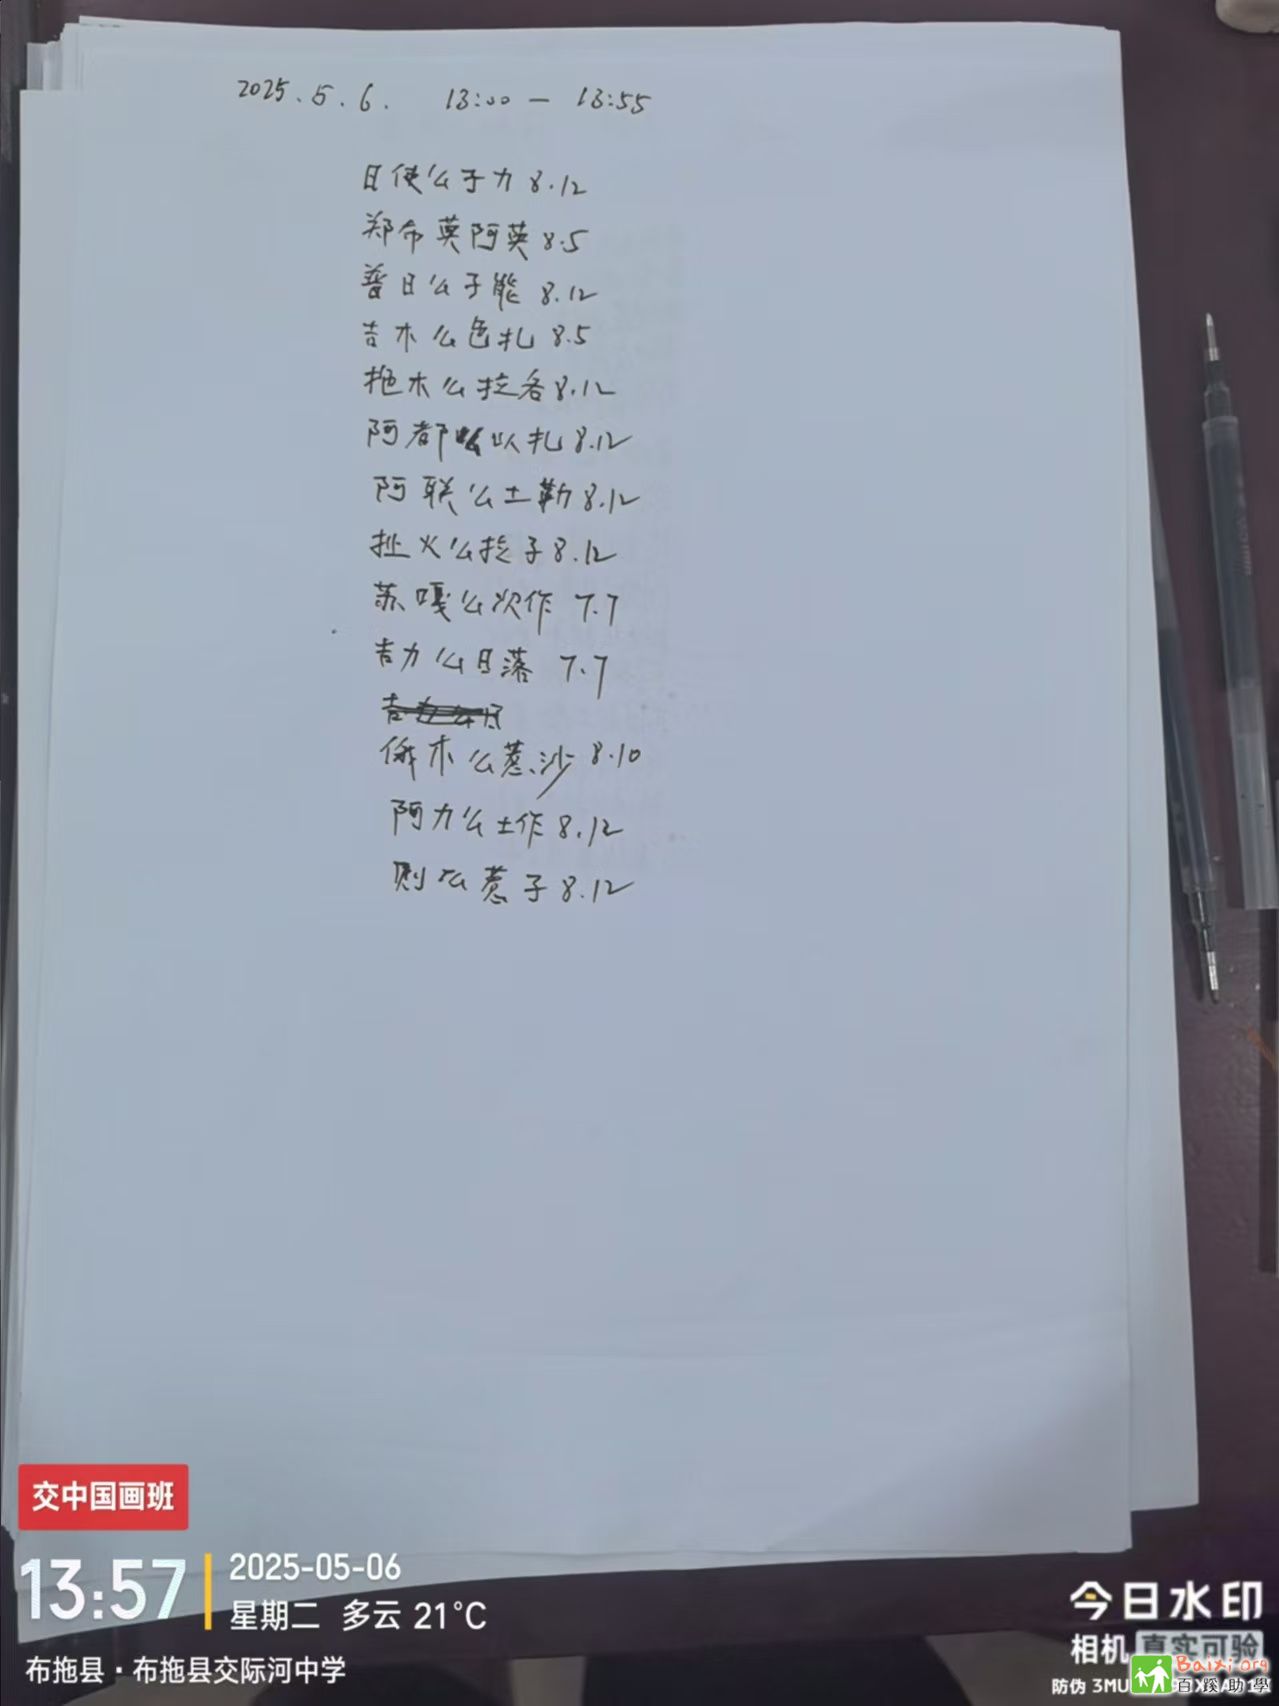 2025.5.6. 13:00 — 13:55
日使么子力 8.12
郑命莫阿英 8.5
普日么子能 8.12
吉木么色扎 8.5
拖木么拉各 8.12
阿都么以扎 8.12
阿联么土勒 8.12
火么子 8.12
苏嘎么次作 7.7
吉力么日落 7.7
俄木么惹沙 8.10
阿力么土作 8.12
则么惹子 8.12
交中国画班
13:57
2025-05-06
星期二 多云 21°C
布拖县·布拖县交际河中学
今日水印
相机 真实可验
防伪 3MU
Baixi.org
百溪助學